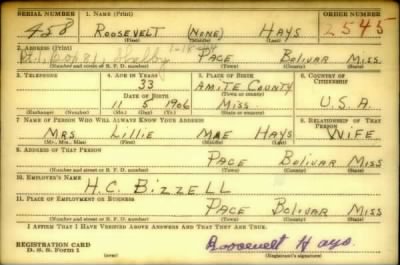 SERIAL NUMBER 1. NAME (Print) ORDER NUMBER
458 ROOSEVELT (NONE) HAYS 2545
(First) (Middle) (Last)
2. ADDRESS (Print)
Shelby 1-18-44 PACE BOLIVAR MISS.
(Number and street or R. F. D. number) (Town) (County) (State)
3. TELEPHONE 4. AGE IN YEARS 5. PLACE OF BIRTH 6. COUNTRY OF CITIZENSHIP
33 AMITE COUNTY
DATE OF BIRTH (Town or county)
11 5 1906 MISS. U.S.A.
(Exchange) (Number) (Mo.) (Day) (Yr.) (State or country)
7. NAME OF PERSON WHO WILL ALWAYS KNOW YOUR ADDRESS 8. RELATIONSHIP OF THAT PERSON
MRS LILLIE MAE HAYS WIFE
(Mr., Mrs., Miss) (First) (Middle) (Last)
9. ADDRESS OF THAT PERSON
PACE BOLIVAR MISS
(Number and street or R. F. D. number) (Town) (County) (State)
10. EMPLOYER'S NAME
H.C. BIZZELL
11. PLACE OF EMPLOYMENT OR BUSINESS
PACE BOLIVAR MISS
(Number and street or R. F. D. number) (Town) (County) (State)
I AFFIRM THAT I HAVE VERIFIED ABOVE ANSWERS AND THAT THEY ARE TRUE.
REGISTRATION CARD
D. S. S. Form 1 Roosevelt Hays
(Registrant's signature)